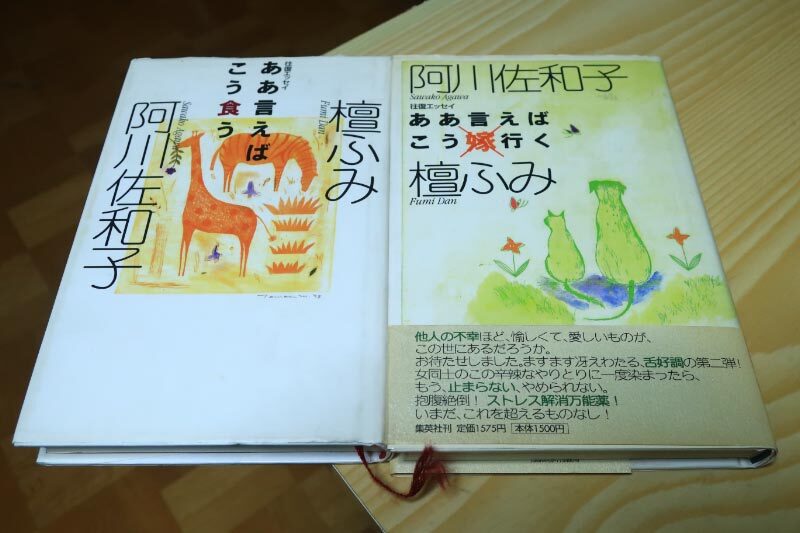 往復エッセイ
ああ言えば
こう食う
檀ふみ
Fumi Dan
阿川佐和子
Sawako Agawa
阿川佐和子
Sawako Agawa
往復エッセイ
ああ言えば
こう嫁行く
檀ふみ
Fumi Dan
他人の不幸ほど、愉しくて、愛しいものが、
この世にあるだろうか。
お待たせしました。ますます冴えわたる、舌好調の第二弾!
女同士のこの辛辣なやりとりに一度染まったら、
もう、止まらない、やめられない。
抱腹絶倒! ストレス解消万能薬!
いまだ、これを超えるものなし!
集英社刊 定価1575円 本体1500円